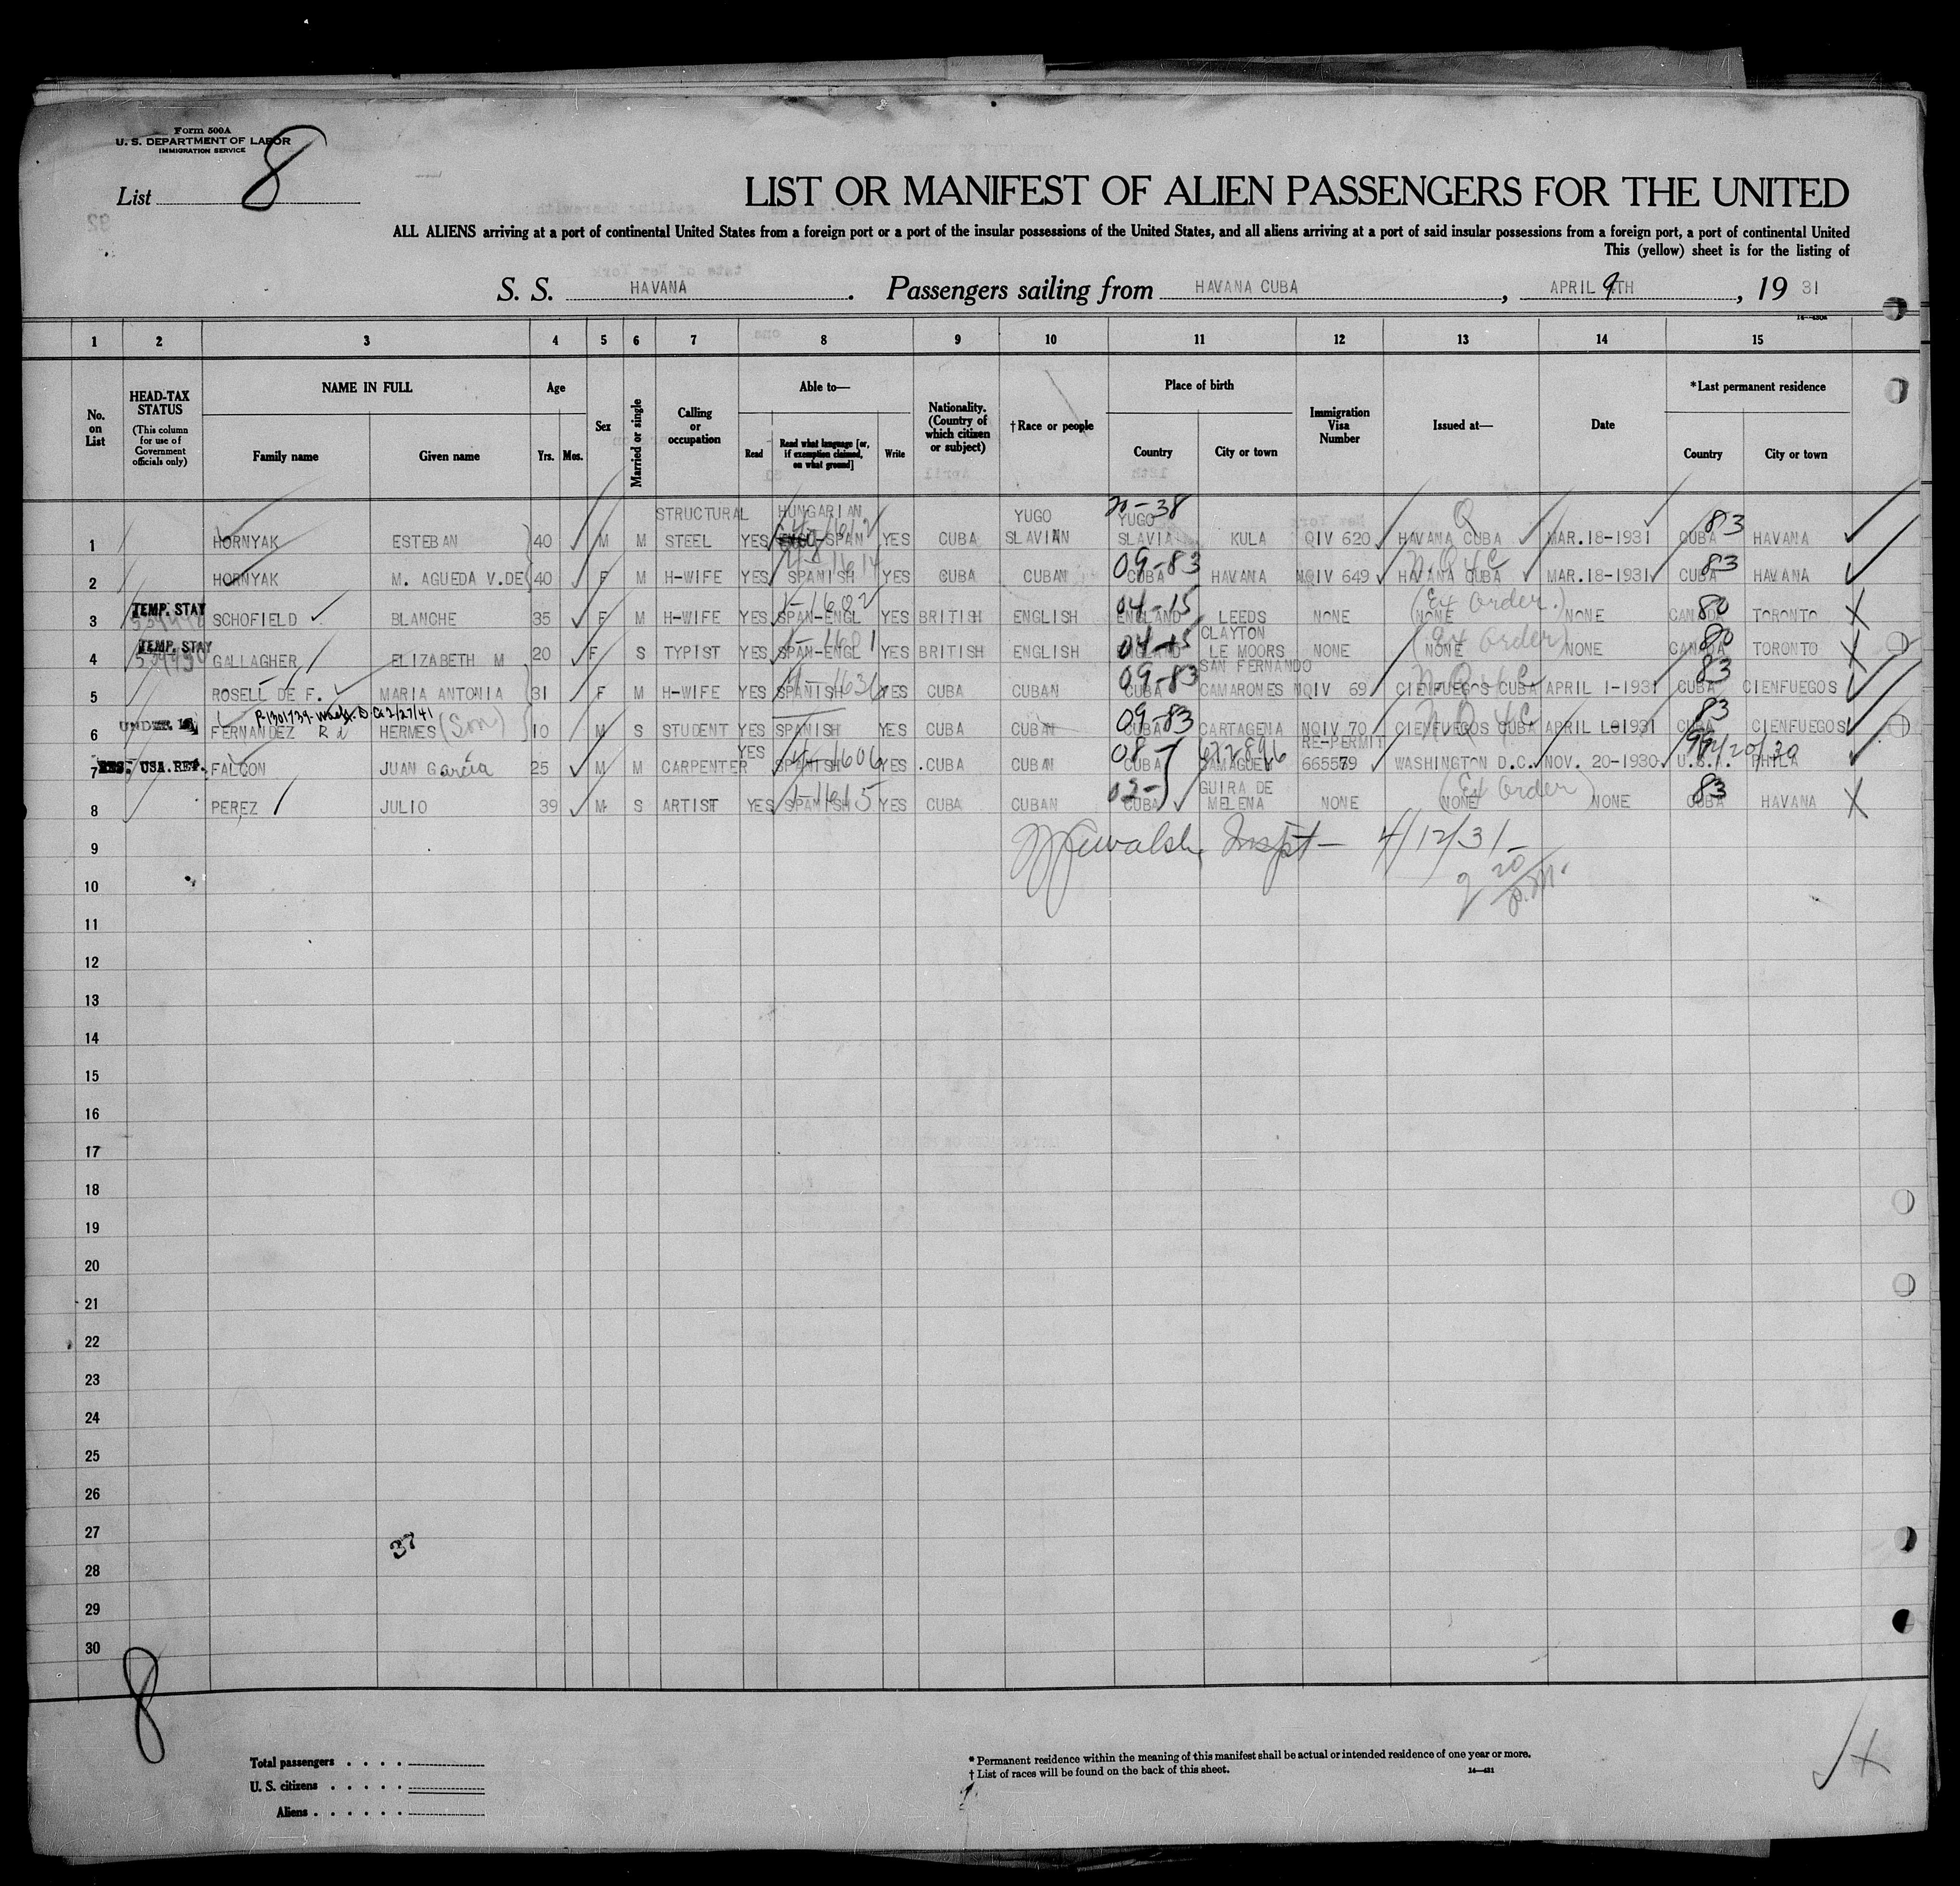 Form 500A
U. S. DEPARTMENT OF LABOR
IMMIGRATION SERVICE
List 8
LIST OR MANIFEST OF ALIEN PASSENGERS FOR THE UNITED
ALL ALIENS arriving at a port of continental United States from a foreign port or a port of the insular possessions of the United States, and all aliens arriving at a port of said insular possessions from a foreign port, a port of continental United
This (yellow) sheet is for the listing of
S. S. HAVANA. Passengers sailing from HAVANA CUBA, APRIL 9TH, 19 31
1 2 3 4 5 6 7 8 9 10 11 12 13 14 15
No. on List
HEAD-TAX STATUS (This column for use of Government officials only)
NAME IN FULL Family name Given name
Age Yrs. Mos.
Sex
Married or single
Calling or occupation
Able to— Read Read what language [or, if exemption claimed, on what ground] Write
Nationality. (Country of which citizen or subject)
† Race or people
Place of birth Country City or town
Immigration Visa Number
Issued at—
Date
* Last permanent residence Country City or town
1 HORNYAK ESTEBAN 40 M M STRUCTURAL STEEL YES HUNGARIAN SPAN YES CUBA YUGO SLAVIAN 20-38 YUGO SLAVIA KULA QIV 620 Q HAVANA CUBA MAR.18-1931 83 CUBA HAVANA
2 HORNYAK M. AGUEDA V.DE 40 F M H-WIFE YES SPANISH YES CUBA CUBAN 09-83 CUBA HAVANA NQIV 649 HAVANA CUBA MAR.18-1931 83 CUBA HAVANA
3 TEMP. STAY SCHOFIELD BLANCHE 35 F M H-WIFE YES SPAN-ENGL YES BRITISH ENGLISH 04-15 ENGLAND LEEDS NONE (Ex Order.) NONE NONE 80 CANADA TORONTO
4 TEMP. STAY GALLAGHER ELIZABETH M 20 F S TYPIST YES SPAN-ENGL YES BRITISH ENGLISH 04-15 CLAYTON LE MOORS NONE (Ex Order) NONE NONE 80 CANADA TORONTO
5 ROSELL DE F. MARIA ANTONIA 31 F M H-WIFE YES SPANISH YES CUBA CUBAN 09-83 CUBA SAN FERNANDO CAMARONES NQIV 69 CIENFUEGOS CUBA APRIL 1-1931 83 CUBA CIENFUEGOS
6 UNDER 16 FERNANDEZ HERMES (Son) 10 M S STUDENT YES SPANISH YES CUBA CUBAN 09-83 CUBA CARTAGENA NQIV 70 CIENFUEGOS CUBA APRIL 1931 83 CUBA CIENFUEGOS
7 RES. USA. RET. FALCON JUAN García 25 M M CARPENTER YES SPANISH YES CUBA CUBAN CUBA CAMAGUEY RE-PERMIT 665579 WASHINGTON D.C. NOV. 20-1930 U.S.A. PHILA
8 PEREZ JULIO 39 M S ARTIST YES SPANISH YES CUBA CUBAN CUBA GUIRA DE MELENA NONE (Ex Order) NONE NONE 83 CUBA HAVANA
9 Inspt— 4/12/31-
10
11
12
13
14
15
16
17
18
19
20
21
22
23
24
25
26
27 37
28
29
30
8
Total passengers
U. S. citizens
Aliens
* Permanent residence within the meaning of this manifest shall be actual or intended residence of one year or more.
† List of races will be found on the back of this sheet.
14—431